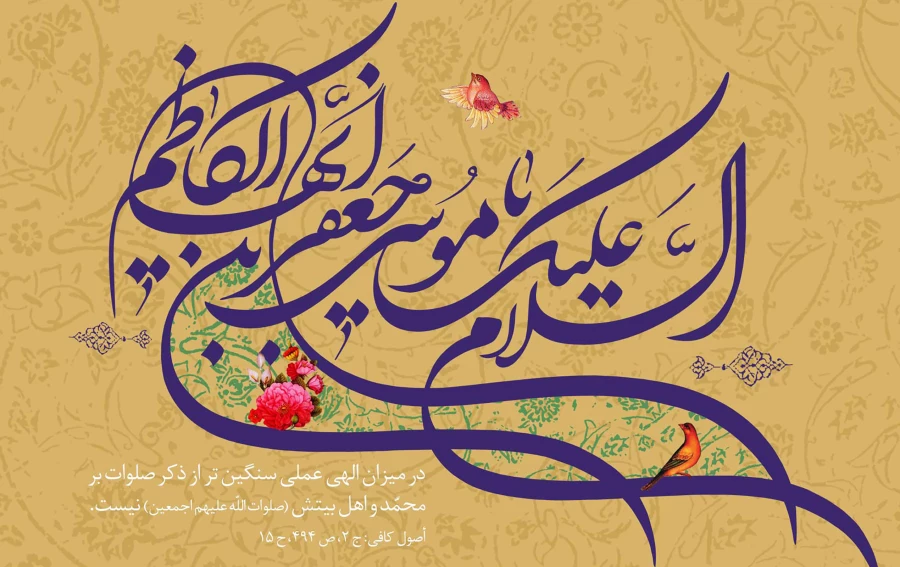 السَّلام علیکَ یا مُوسی بن جَعفر أیّها الکاظم
در میزان الهی عملی سنگین تر از ذکر صلوات بر
محمّد و اهل بیتش (صلوات الله علیهم اجمعین) نیست.
اصول کافی: ج ۲، ص ۴۹۴، ح ۱۵